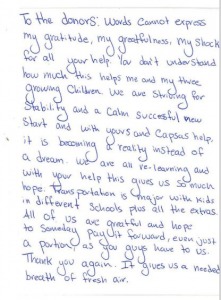 To the donors: Words cannot express
my gratitude, my greatfulness, my shock
for all your help. You don't understand
how much this helps me and my three
growing children. We are striving for
stability and a calm successful new
start and with yours and Capsas help.
it is becoming a reality instead of
a dream. We are all re-learning and
with your help this gives us so much
hope. Transportation is major with kids
in different schools plus all the extras.
All of us are greatful and hope
to someday pay it forward, even just
a portion, as you guys have to us.
Thank you again. It gives us a needed
breath of fresh air.